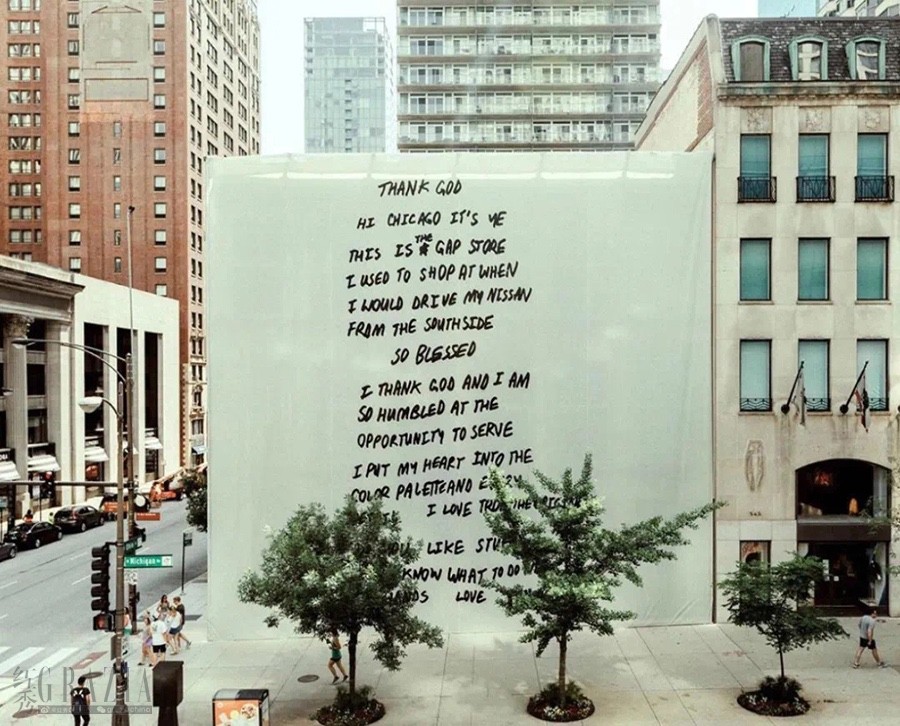 THANK GOD
HI CHICAGO IT'S YE
THIS IS THE GAP STORE
I USED TO SHOP AT WHEN
I WOULD DRIVE MY NISSAN
FROM THE SOUTHSIDE
SO BLESSED
I THANK GOD AND I AM
SO HUMBLED AT THE
OPPORTUNITY TO SERVE
I PUT MY HEART INTO THE
COLOR PALETTE AND
I LOVE
LIKE
KNOW WHAT TO DO
LOVE
Michigan
GRAZIA